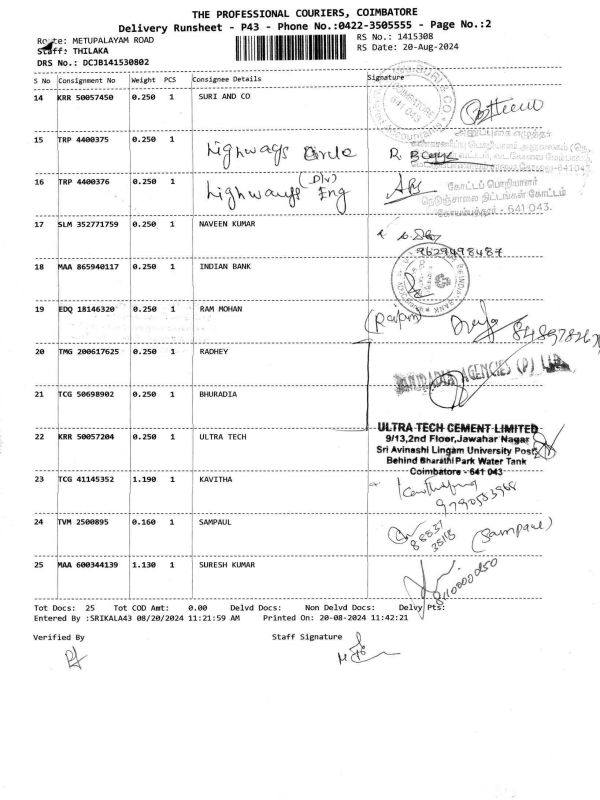 THE PROFESSIONAL COURIERS, COIMBATORE
Delivery Runsheet - P43 - Phone No.:0422-3505555 - Page No.:2
Route: METUPALAYAM ROAD
RS No.: 1415308
Staff: THILAKA
RS Date: 20-Aug-2024
DRS No.: DCJB141530802
S No Consignment No Weight PCS Consignee Details Signature
14 KRR 50057450 0.250 1 SURI AND CO
COIMBATORE
641 043
15 TRP 4400375 0.250 1 Highways Circle
16 TRP 4400376 0.250 1 Highways (Div) Eng
கோட்டப் பொறியாளர்
நெடுஞ்சாலை திட்டங்கள் கோட்டம்
கோயம்புத்தூர் - 641 043.
17 SLM 352771759 0.250 1 NAVEEN KUMAR
9629498487
18 MAA 865940117 0.250 1 INDIAN BANK
19 EDQ 18146320 0.250 1 RAM MOHAN
20 TMG 200617625 0.250 1 RADHEY
21 TCG 50698902 0.250 1 BHURADIA
AGENCIES (P) LTD
22 KRR 50057204 0.250 1 ULTRA TECH
ULTRA TECH CEMENT LIMITED
9/13,2nd Floor,Jawahar Nagar
Sri Avinashi Lingam University Post
Behind Bharathi Park Water Tank
Coimbatore - 641 043
23 TCG 41145352 1.190 1 KAVITHA
24 TVM 2500895 0.160 1 SAMPAUL
(Sampaul)
25 MAA 600344139 1.130 1 SURESH KUMAR
Tot Docs: 25 Tot COD Amt: 0.00 Delvd Docs: Non Delvd Docs: Delvy Pts:
Entered By :SRIKALA43 08/20/2024 11:21:59 AM Printed On: 20-08-2024 11:42:21
Verified By Staff Signature